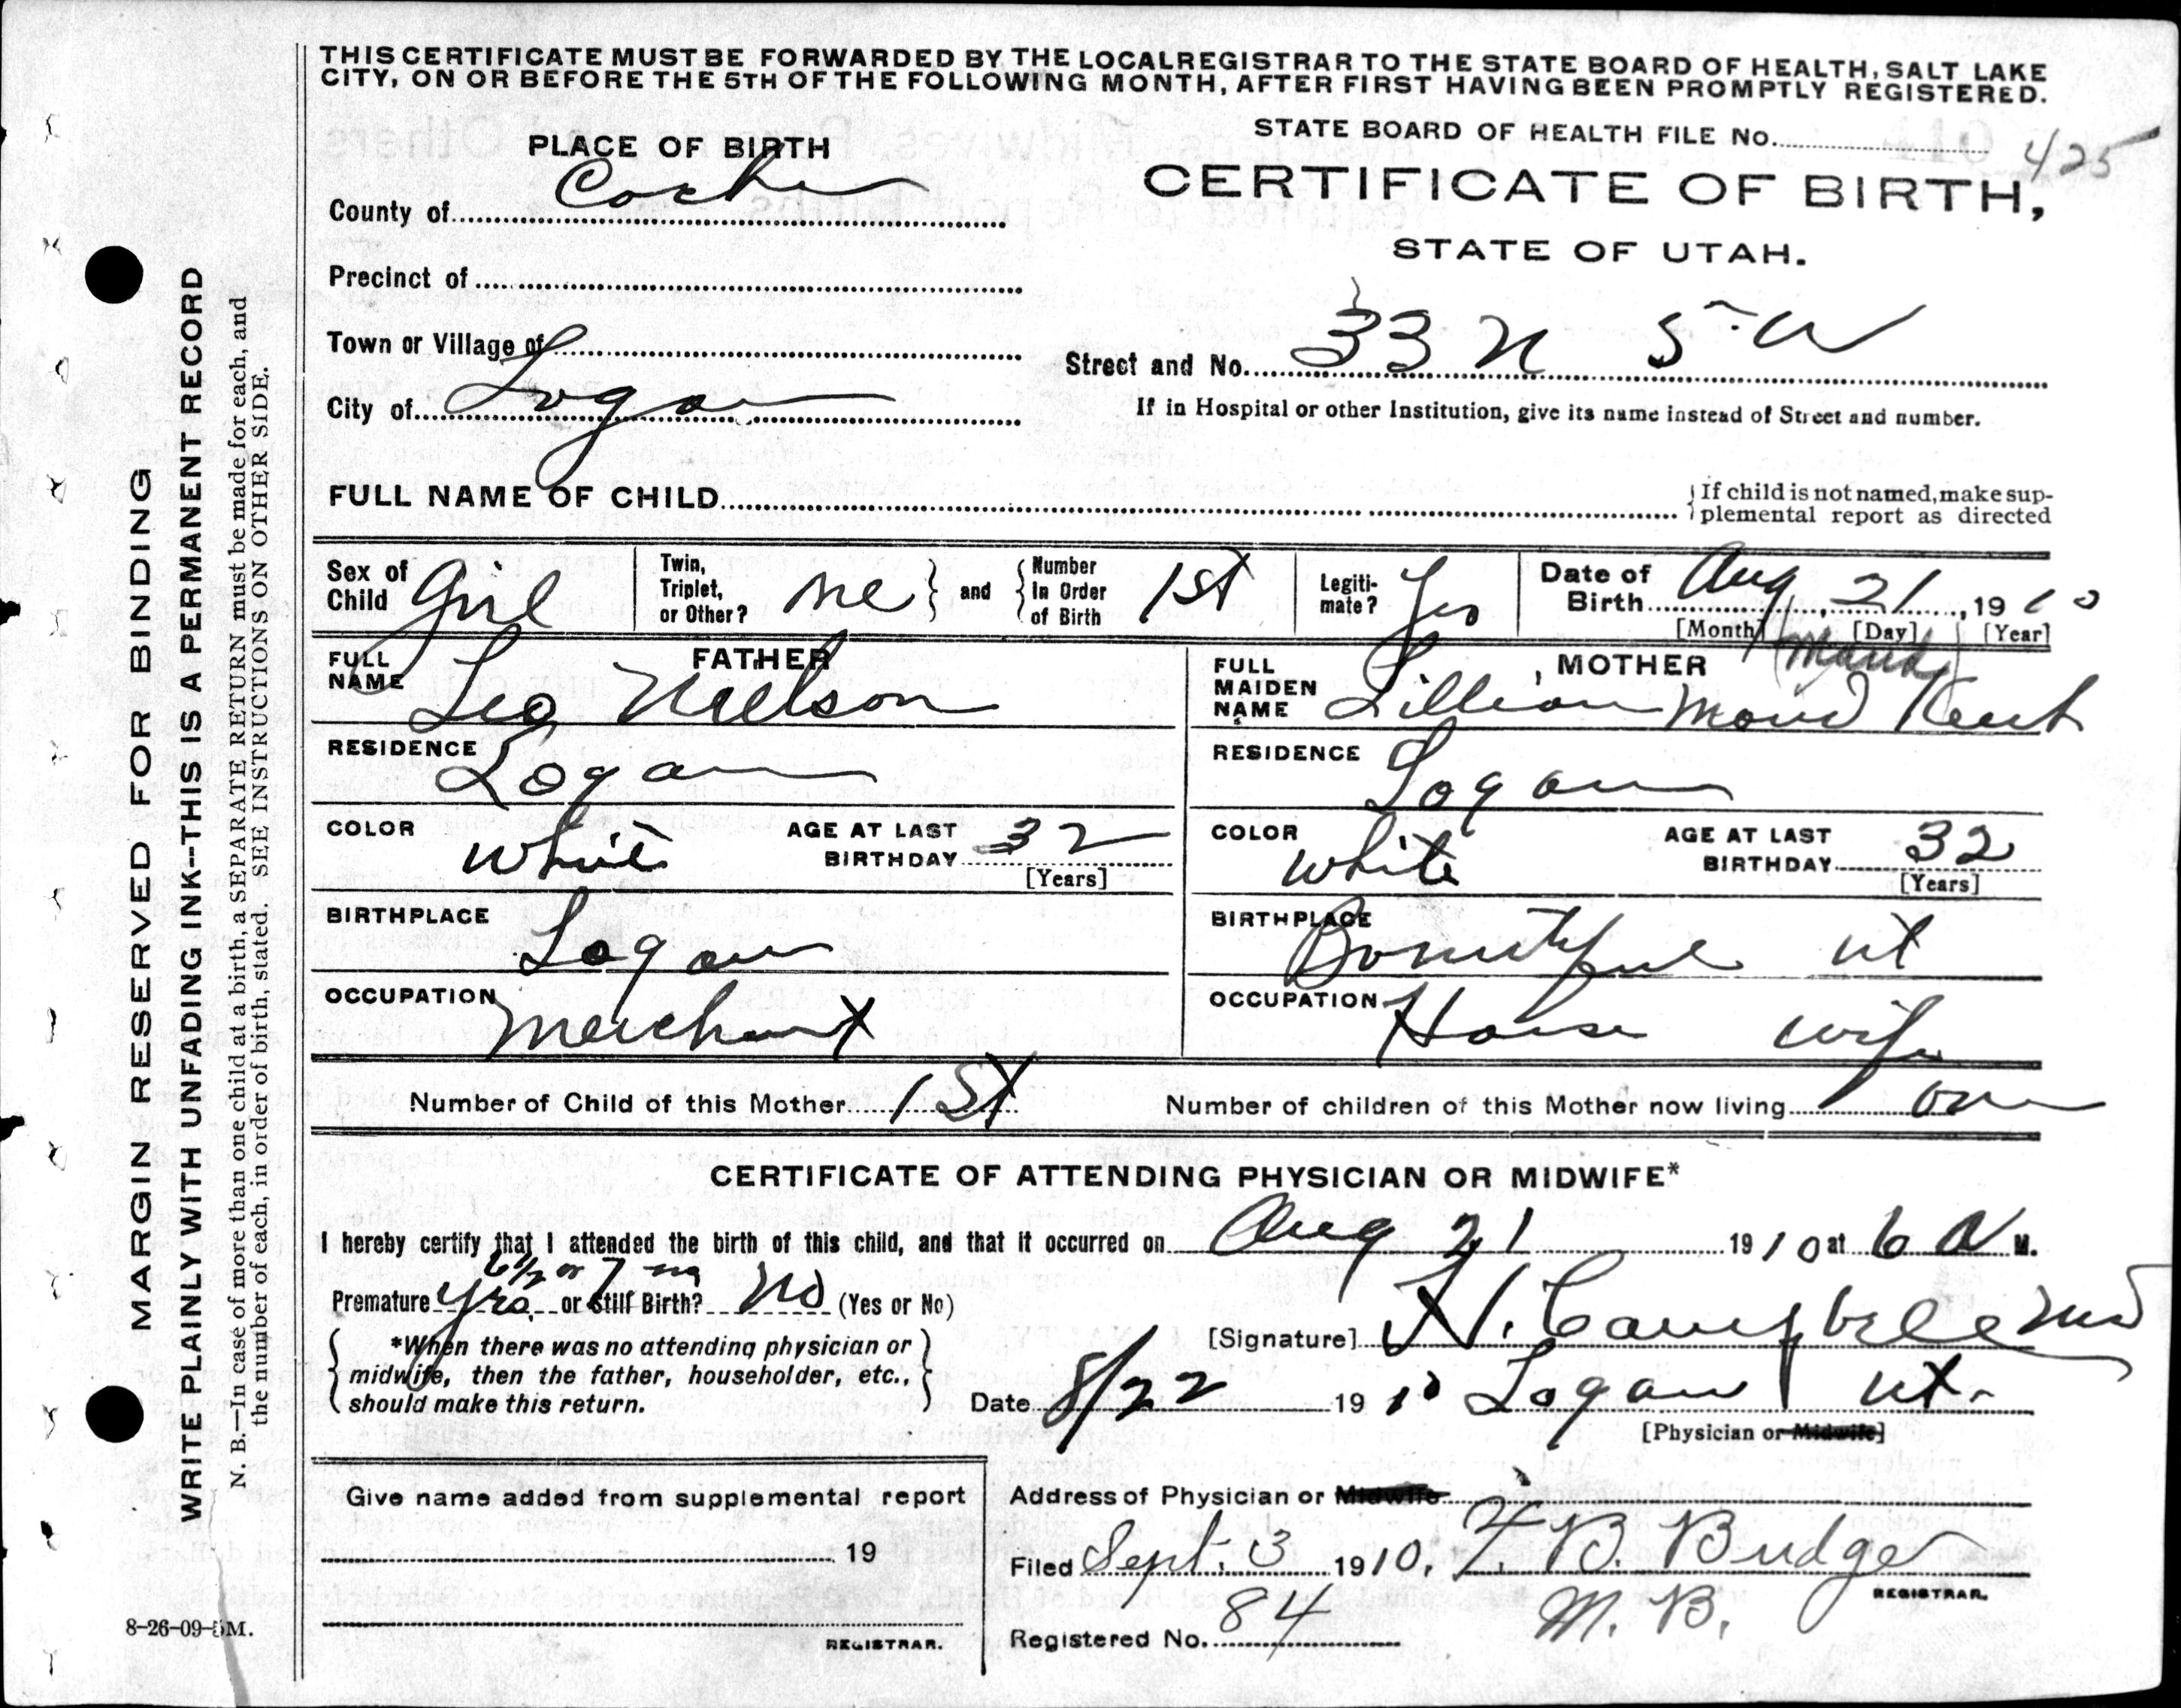 THIS CERTIFICATE MUST BE FORWARDED BY THE LOCAL REGISTRAR TO THE STATE BOARD OF HEALTH, SALT LAKE
CITY, ON OR BEFORE THE 5TH OF THE FOLLOWING MONTH, AFTER FIRST HAVING BEEN PROMPTLY REGISTERED.
STATE BOARD OF HEALTH FILE No. 425
PLACE OF BIRTH
CERTIFICATE OF BIRTH,
STATE OF UTAH.
County of Cache
Precinct of
Town or Village of
Street and No. 33 N 5 W
City of Logan
If in Hospital or other Institution, give its name instead of Street and number.
FULL NAME OF CHILD
If child is not named, make sup-
plemental report as directed
Sex of Child Girl
Twin, Triplet, or Other? and Number in Order of Birth 1st
Legiti-mate? Yes
Date of Birth Aug 21, 1910
[Month] [Day] [Year]
FATHER
FULL NAME Leo Nielson
RESIDENCE Logan
COLOR White AGE AT LAST BIRTHDAY 32
[Years]
BIRTHPLACE Logan
OCCUPATION Merchant
MOTHER (Maud)
FULL MAIDEN NAME Lillian Kent
RESIDENCE Logan
COLOR White AGE AT LAST BIRTHDAY 32
[Years]
BIRTHPLACE Bountiful Ut
OCCUPATION House wife
Number of Child of this Mother 1st
Number of children of this Mother now living one
CERTIFICATE OF ATTENDING PHYSICIAN OR MIDWIFE*
I hereby certify that I attended the birth of this child, and that it occurred on Aug 21 1910 at 6 A M.
6 1/2 or 7 mo
Premature yes. or Still Birth? No (Yes or No)
*When there was no attending physician or
midwife, then the father, householder, etc.,
should make this return.
[Signature] Campbell MD
Date 8/22 1910 Logan Ut.
[Physician or Midwife]
Give name added from supplemental report
19
REGISTRAR.
Address of Physician or Midwife
Filed Sept. 3 1910. T. B. Budge
REGISTRAR.
Registered No. 84
8-26-09-5M.
MARGIN RESERVED FOR BINDING
WRITE PLAINLY WITH UNFADING INK--THIS IS A PERMANENT RECORD
N. B.—In case of more than one child at a birth, a SEPARATE RETURN must be made for each, and
the number of each, in order of birth, stated. SEE INSTRUCTIONS ON OTHER SIDE.